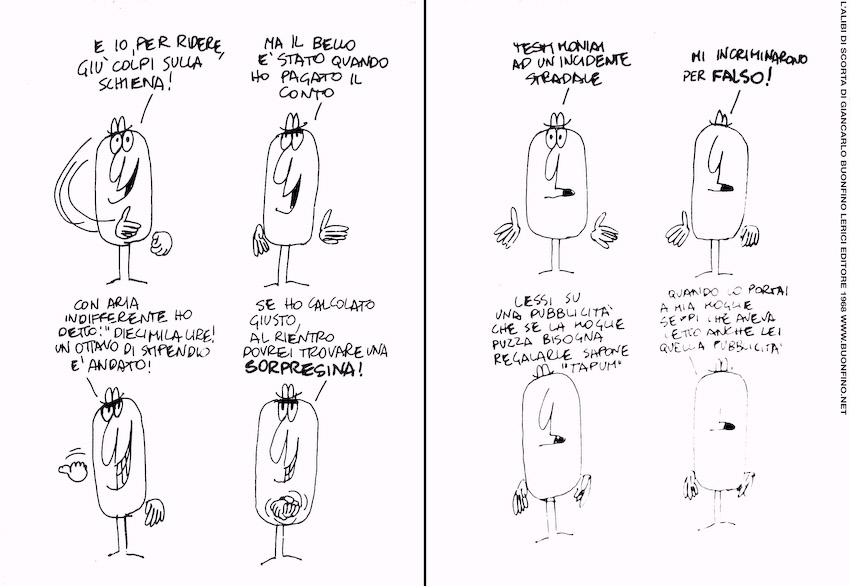 E IO, PER RIDERE,
GIU' COLPI SULLA
SCHIENA!
MA IL BELLO
E' STATO QUANDO
HO PAGATO IL
CONTO
CON ARIA
INDIFFERENTE HO
DETTO: "DIECIMILA LIRE!
UN OTTAVO DI STIPENDIO
E' ANDATO!
SE HO CALCOLATO
GIUSTO,
AL RIENTRO
DOVREI TROVARE UNA
SORPRESINA!
TESTIMONIAI
AD UN INCIDENTE
STRADALE
MI INCRIMINARONO
PER FALSO!
LESSI SU
UNA PUBBLICITA'
CHE SE LA MOGLIE
PUZZA BISOGNA
REGALARLE SAPONE
"TAPUM"
QUANDO LO PORTAI
A MIA MOGLIE
SEPPI CHE AVEVA
LETTO ANCHE LEI
QUELLA PUBBLICITA'
L'ALIBI DI SCORTA DI GIANCARLO BUONFINO LERICI EDITORE 1968 WWW.BUONFINO.NET